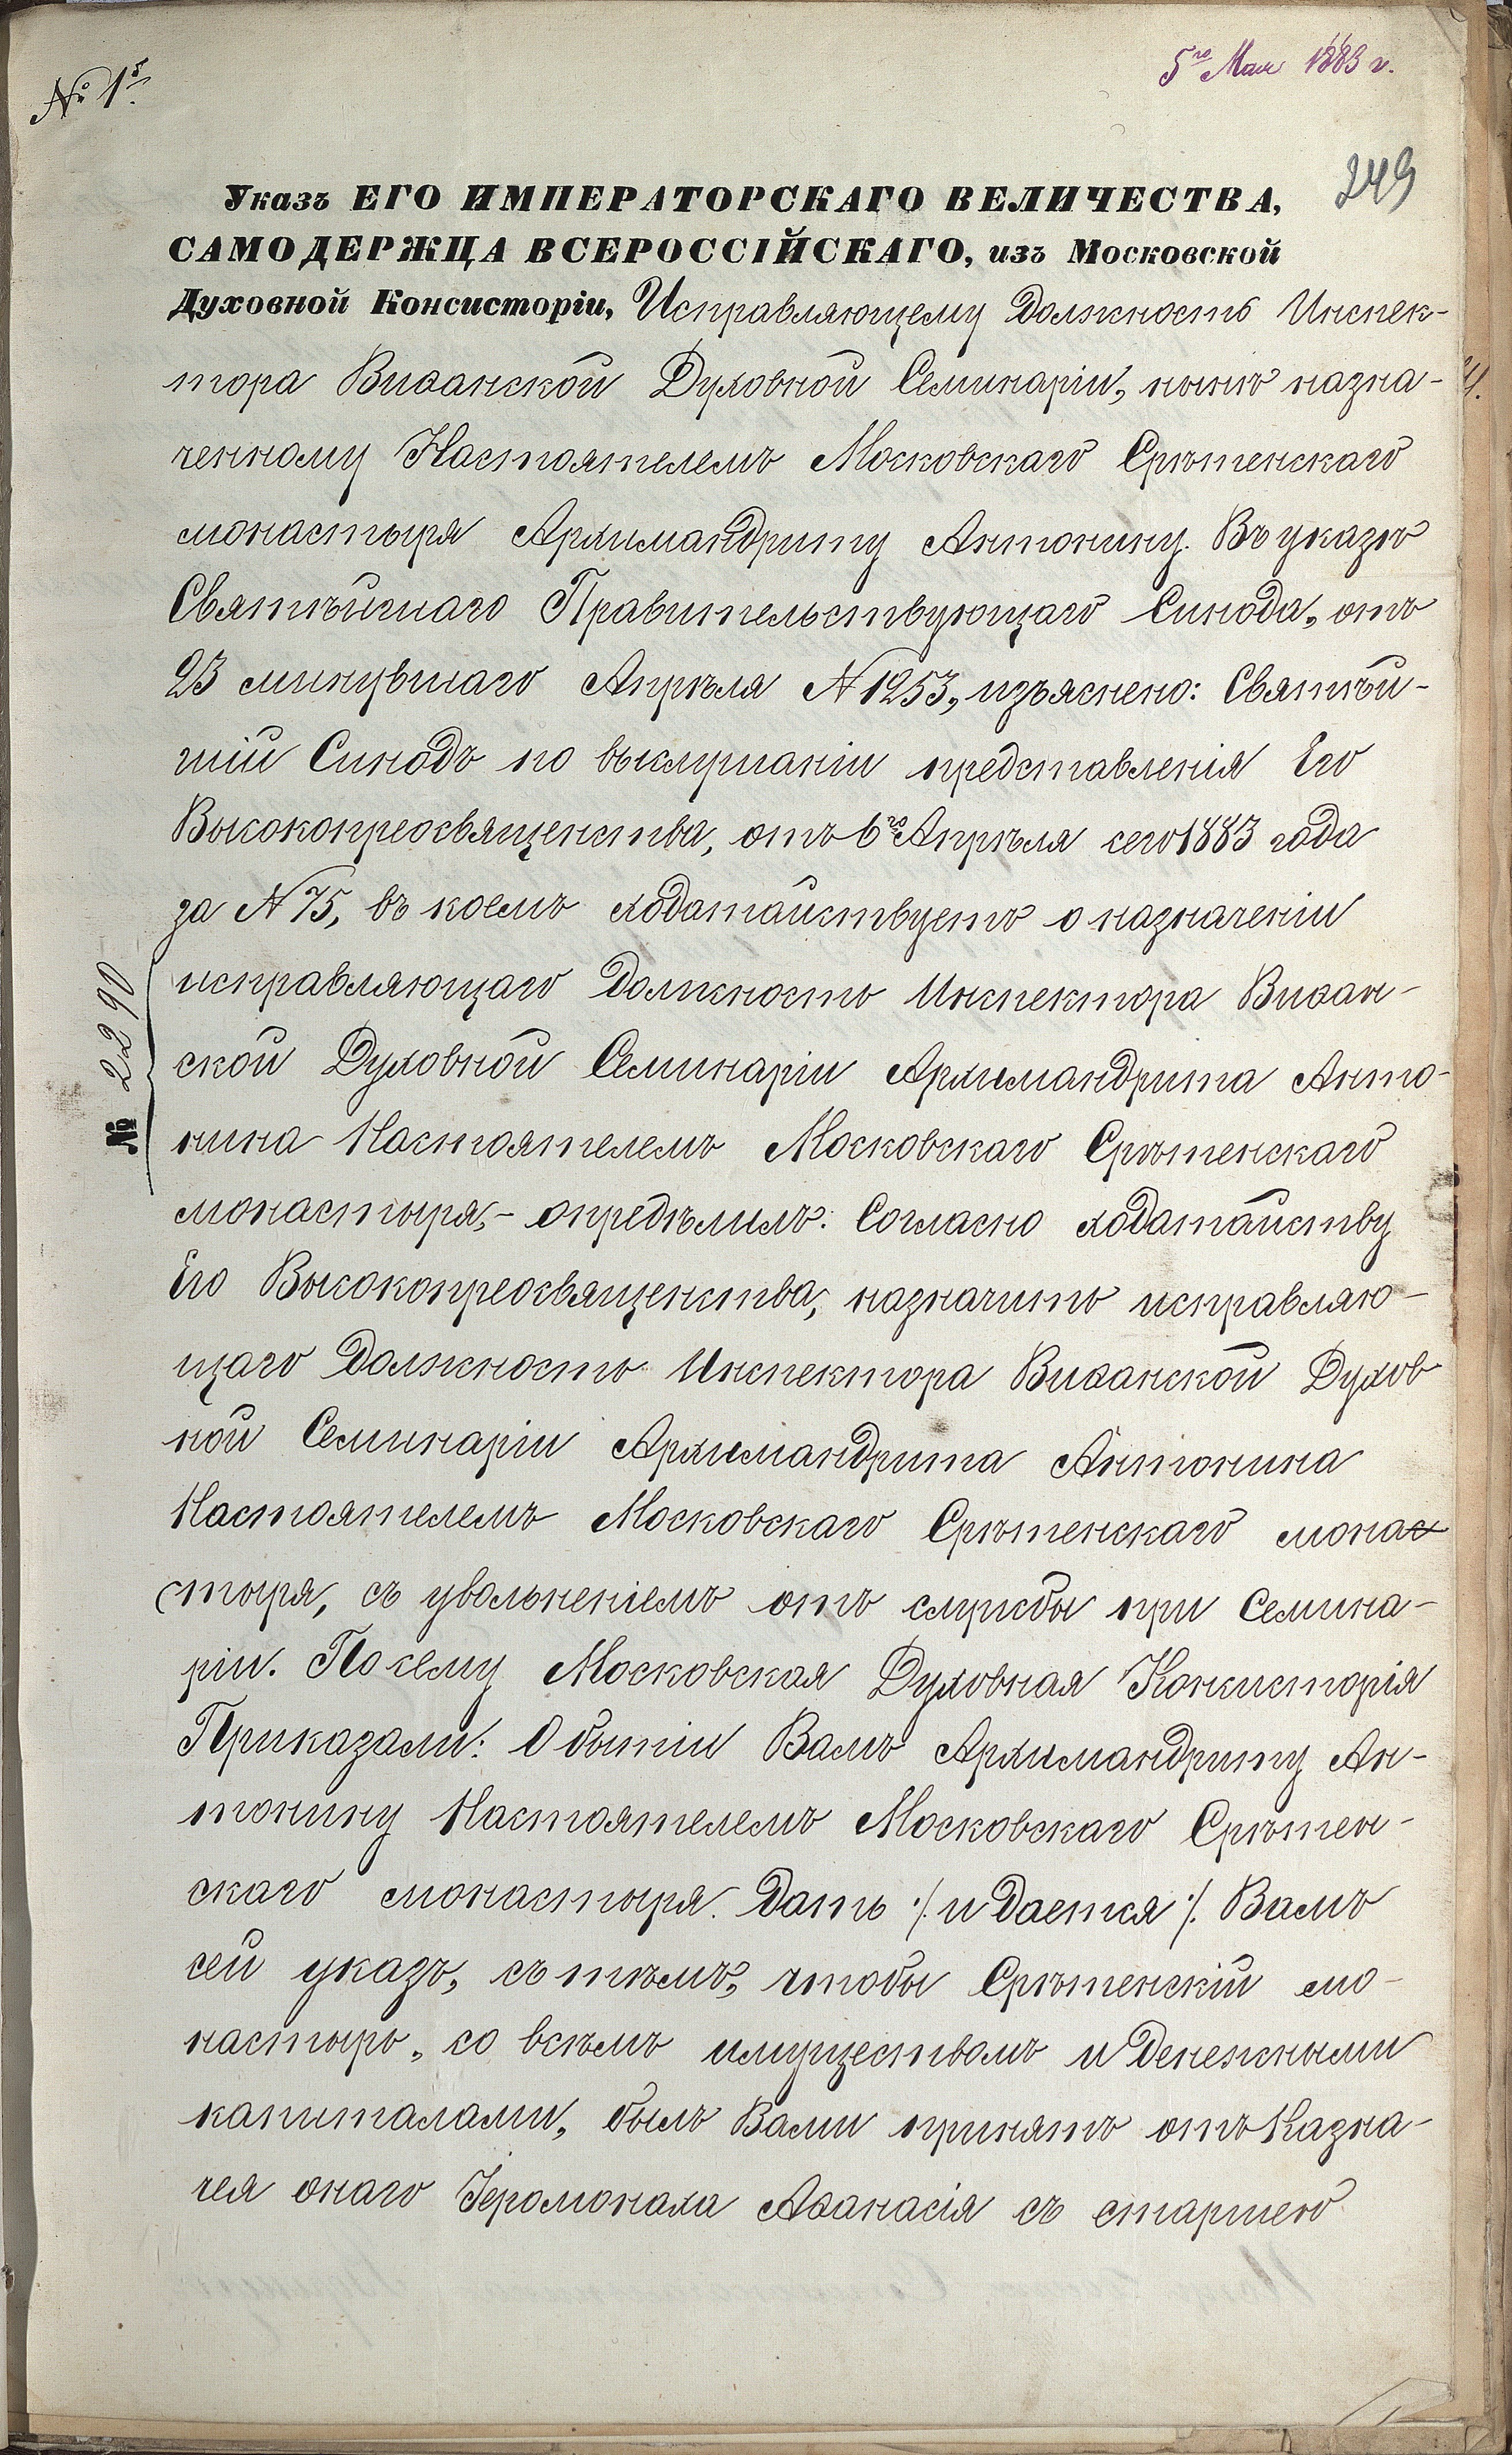 5го Мая 1883 г.
№ 1й.
249
Указъ ЕГО ИМПЕРАТОРСКАГО ВЕЛИЧЕСТВА,
САМОДЕРЖЦА ВСЕРОССІЙСКАГО, изъ Московской
Духовной Консисторіи, Исправляющему Должность Инспек-
тора Виѳанской Духовной Семинаріи, нынѣ назна-
ченному Настоятелемъ Московскаго Срѣтенскаго
монастыря Архимандриту Антонину. Въ указѣ
Святѣйшаго Правительствующаго Синода, отъ
23 минувшаго Апрѣля № 1253, изъяснено: Святѣй-
шій Синодъ по выслушаніи представленія Его
Высокопреосвященства, отъ 6го Апрѣля сего 1883 года
за № 75, въ коемъ ходатайствуетъ о назначеніи
исправляющаго Должность Инспектора Виѳан-
ской Духовной Семинаріи Архимандрита Анто-
нина Настоятелемъ Московскаго Срѣтенскаго
монастыря,- опредѣлилъ: Согласно ходатайству
Его Высокопреосвященства, назначить исправляю-
щаго Должность Инспектора Виѳанской Духов
ной Семинаріи Архимандрита Антонина
Настоятелемъ Московскаго Срѣтенскаго монас
тыря, съ увольненіемъ отъ службы при Семина-
ріи. По сему Московская Духовная Консисторія
Приказали: О бытіи Вамъ Архимандриту Ан-
тонину Настоятелемъ Московскаго Срѣтен-
скаго монастыря. Дать ./. и Дается ./. Вамъ
сей указъ, съ тѣмъ, чтобы Срѣтенскій мо-
настырь, со всѣмъ имуществомъ и Денежными
капиталами, былъ Вами принятъ отъ Казна-
чея онаго Іеромонаха Аѳанасія съ старшею
№ 2290